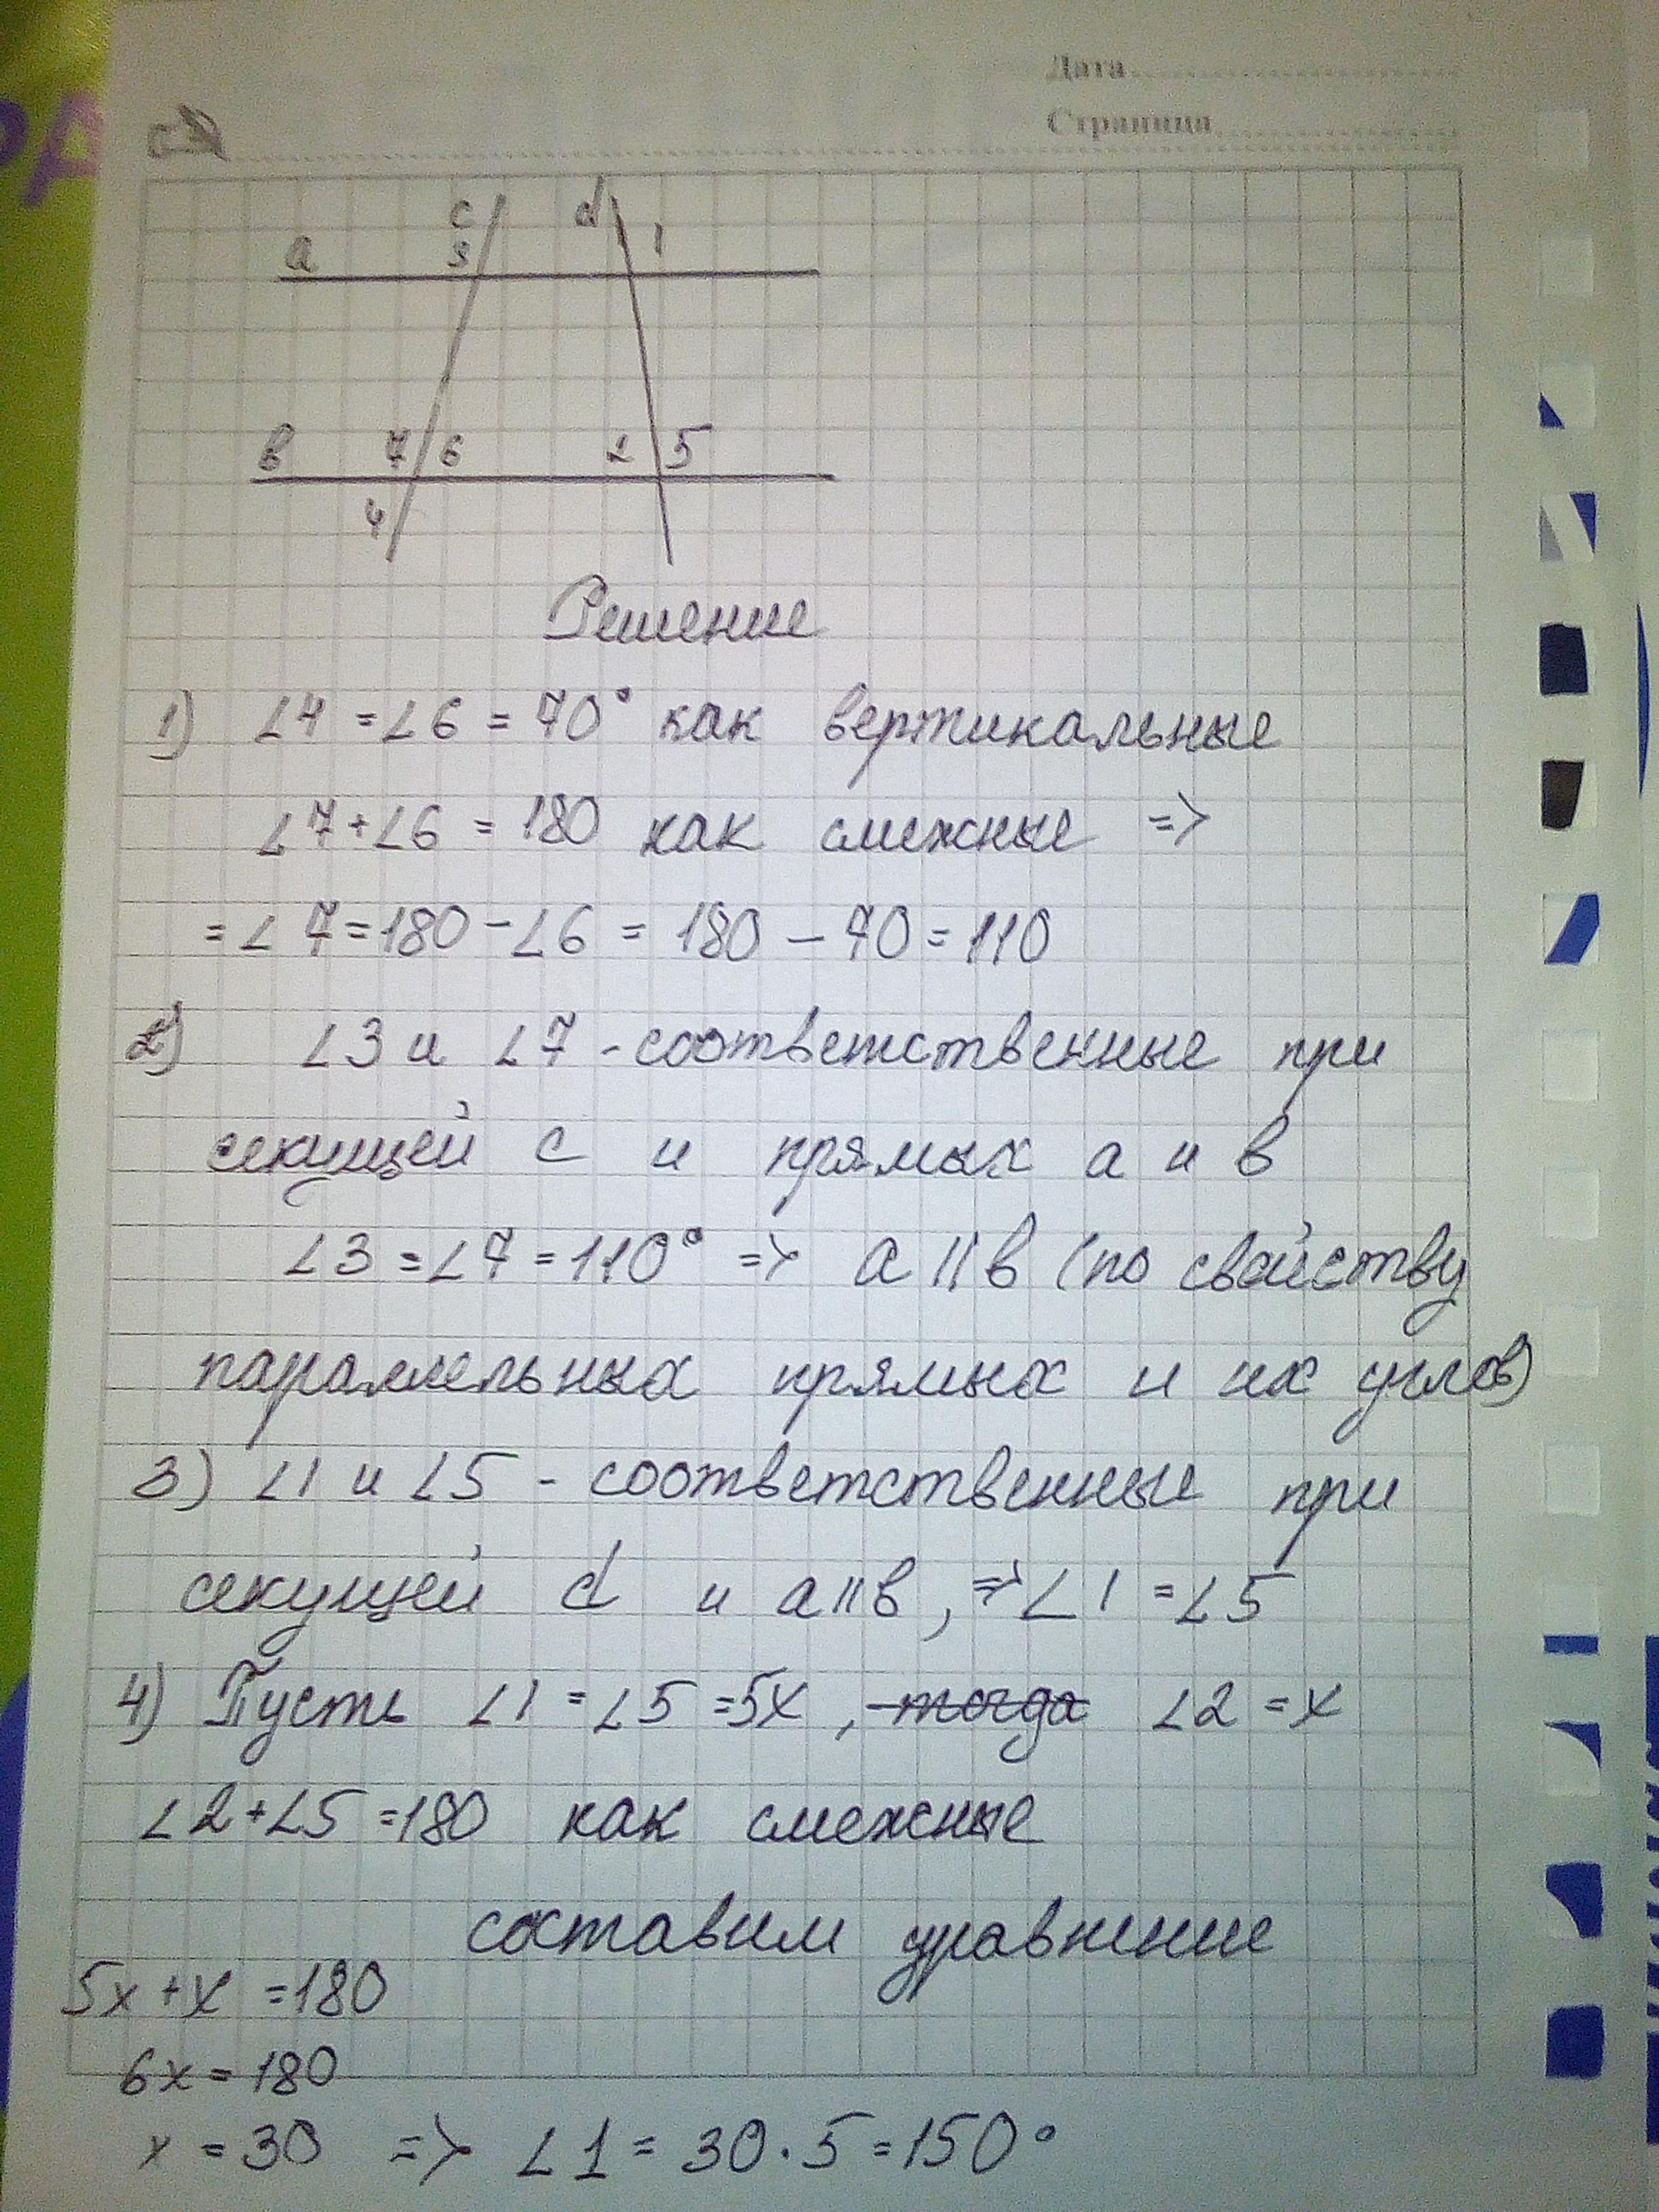 РА
Дата
Страница
c d
a 3 1
в 7 6 2 5
4
Решение
1) ∠4 = ∠6 = 70° как вертикальные
∠7+∠6 = 180 как смежные =>
= ∠7=180-∠6 = 180 - 70 = 110
2) ∠3 и ∠7 - соответственные при
секущей c и прямых a и в
∠3 = ∠7 = 110° => a || в (по свойству
параллельных прямых и их углов)
3) ∠1 и ∠5 - соответственные при
секущей d и a||в, => ∠1 = ∠5
4) Пусть ∠1 = ∠5 = 5x, тогда ∠2 = x
∠2+∠5 =180 как смежные
составим уравнение
5x + x = 180
6x = 180
x = 30 => ∠1 = 30 · 5 = 150°